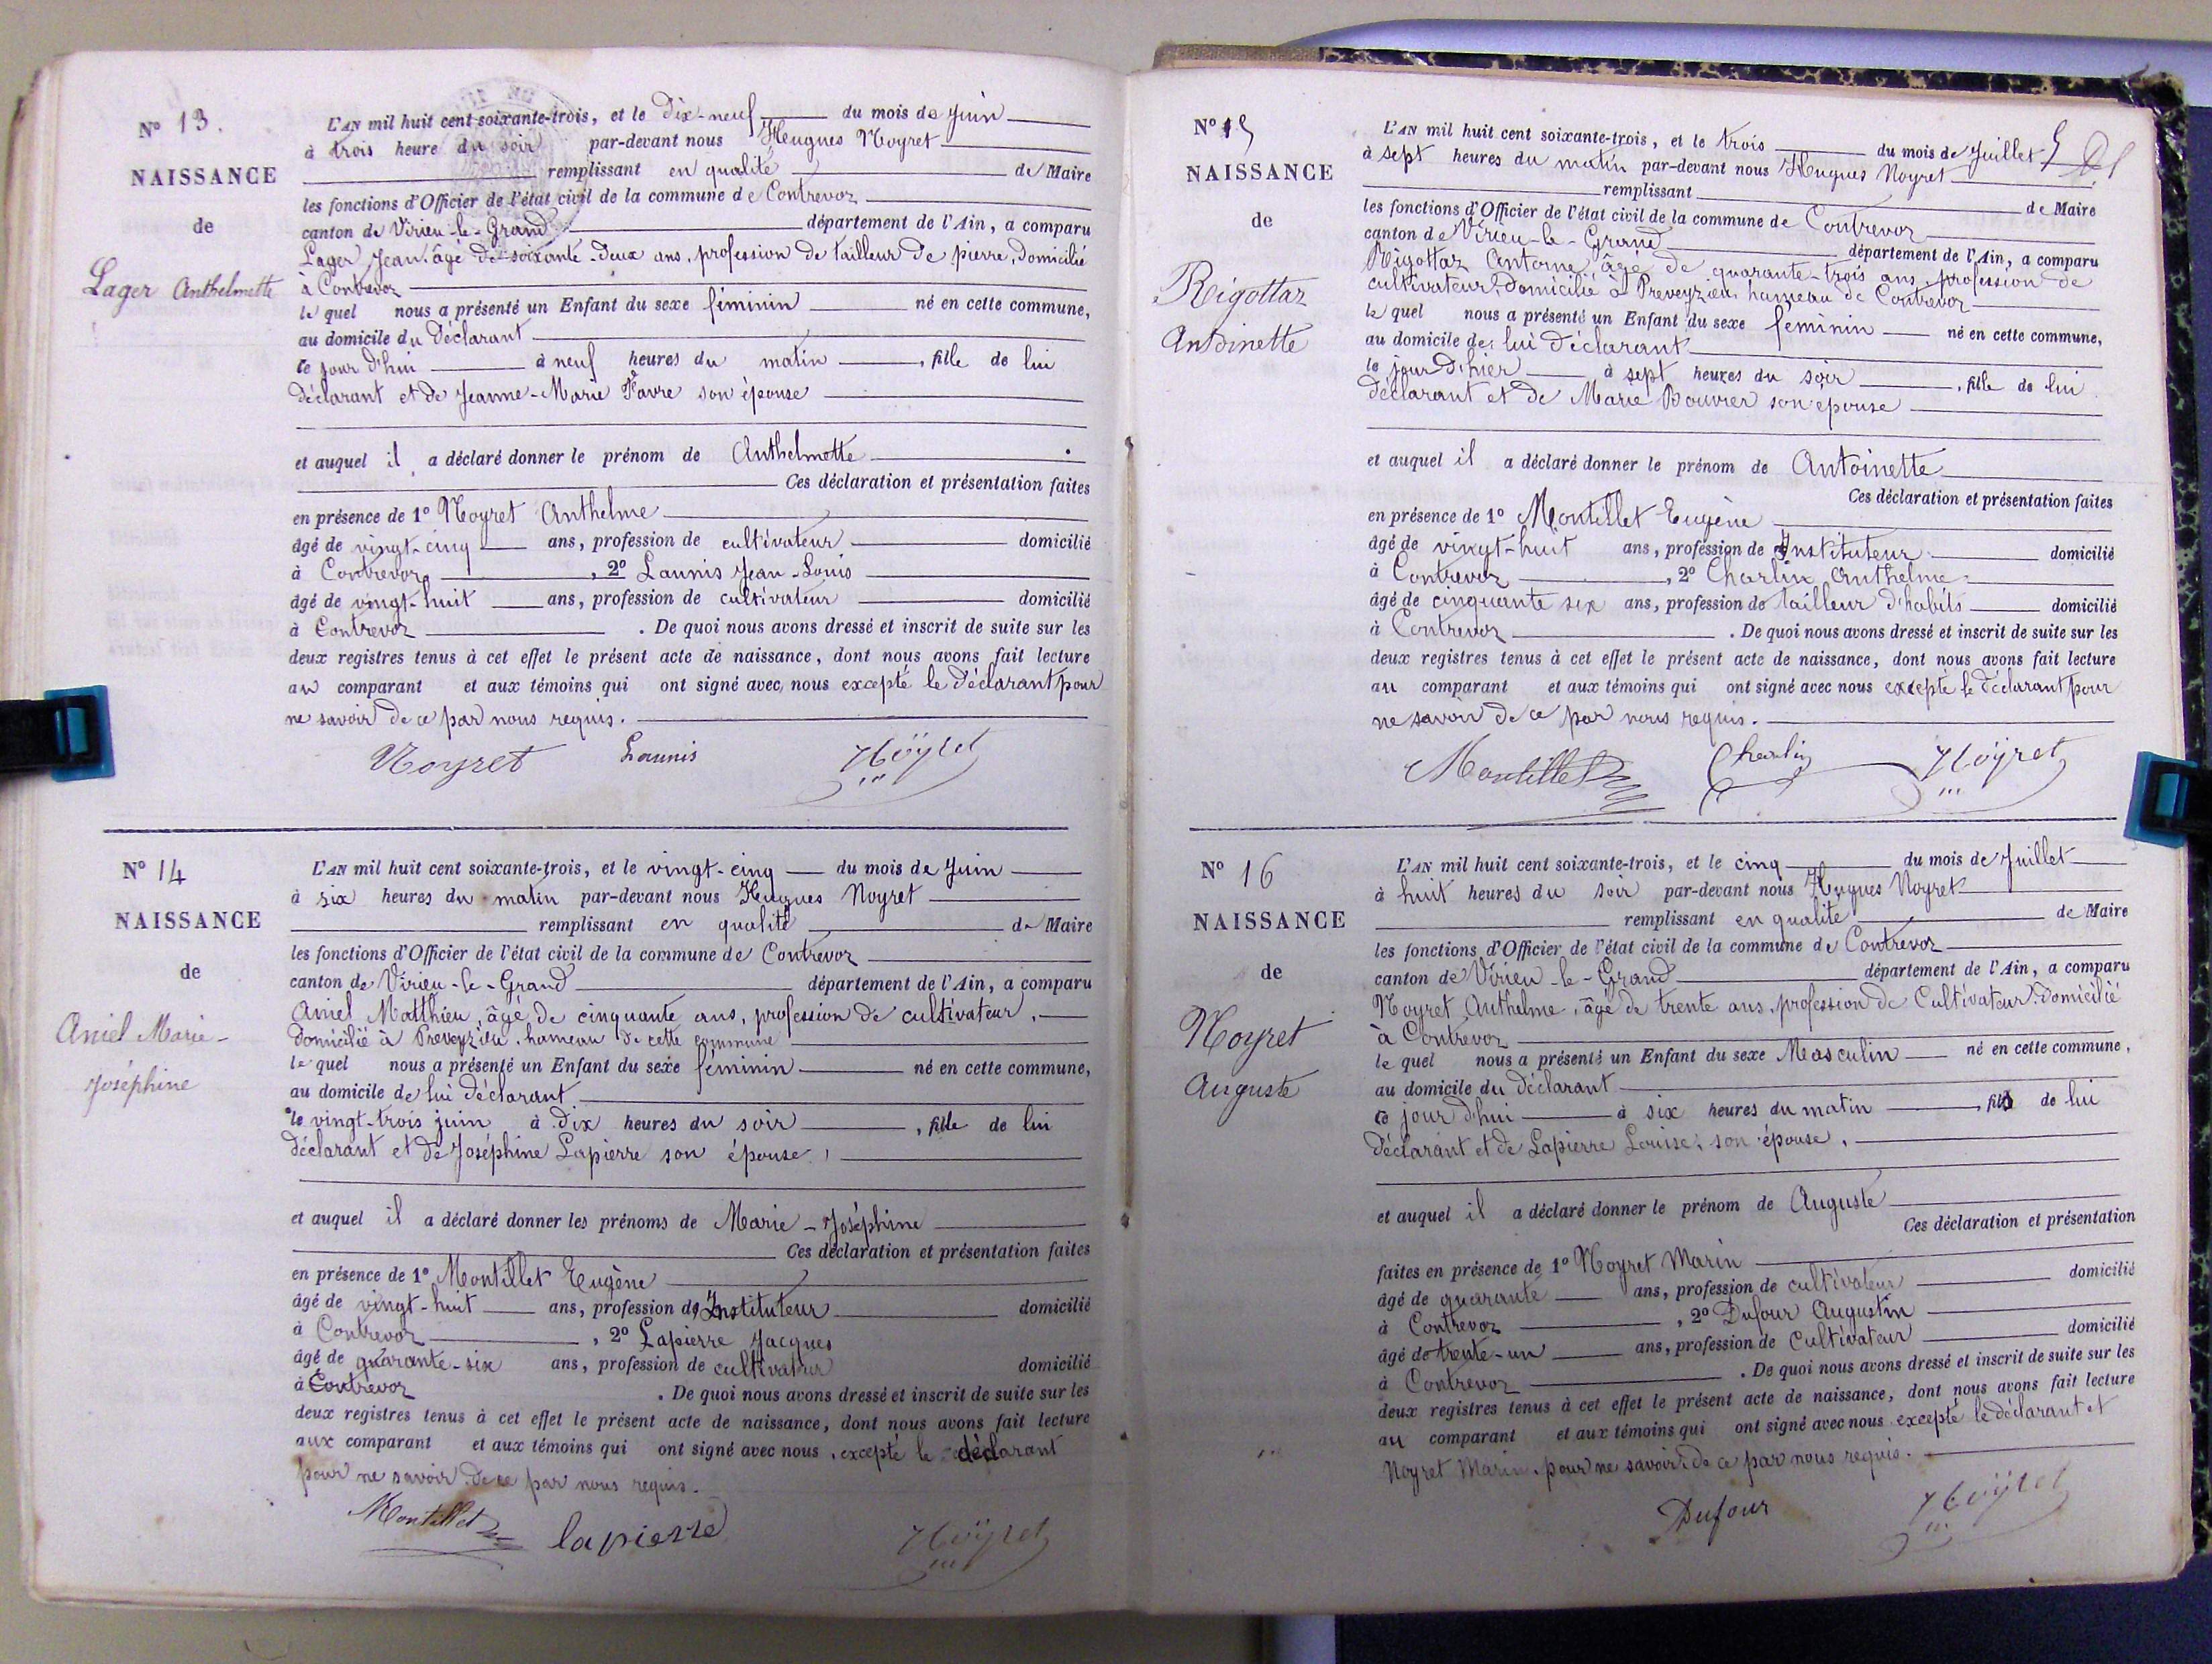 N° 13.
NAISSANCE
de
Lager Anthelmette
L'AN mil huit cent soixante-trois, et le Dix-neuf du mois de Juin
à trois heure du soir par-devant nous Hugues Noyret
remplissant en qualité de Maire
les fonctions d'Officier de l'état civil de la commune de Contrevoz
canton de Virieu-le-Grand département de l'Ain, a comparu
Lager Jean, âgé de soixante-deux ans, profession de tailleur de pierre, domicilié
à Contrevoz
le quel nous a présenté un Enfant du sexe féminin né en cette commune,
au domicile du Déclarant
ce jour d'hui à neuf heures du matin, fille de lui
déclarant et de Jeanne-Marie Favre son épouse
et auquel il a déclaré donner le prénom de Anthelmette
Ces déclaration et présentation faites
en présence de 1° Noyret Anthelme
âgé de vingt-cinq ans, profession de cultivateur domicilié
à Contrevoz, 2° Launis Jean-Louis
âgé de vingt-huit ans, profession de cultivateur domicilié
à Contrevoz. De quoi nous avons dressé et inscrit de suite sur les
deux registres tenus à cet effet le présent acte de naissance, dont nous avons fait lecture
au comparant et aux témoins qui ont signé avec nous excepté le déclarant pour
ne savoir de ce par nous requis.
Noyret Launis Noÿret
N° 14
NAISSANCE
de
Aniel Marie-
Joséphine
L'AN mil huit cent soixante-trois, et le vingt-cinq du mois de Juin
à six heures du matin par-devant nous Hugues Noyret
remplissant en qualité de Maire
les fonctions d'Officier de l'état civil de la commune de Contrevoz
canton de Virieu-le-Grand département de l'Ain, a comparu
Aniel Matthieu, âgé de cinquante ans, profession de cultivateur,
domicilié à Preveyzieu, hameau de cette commune
le quel nous a présenté un Enfant du sexe féminin né en cette commune,
au domicile de lui déclarant
le vingt-trois juin à dix heures du soir, fille de lui
déclarant et de Joséphine Lapierre son épouse,
et auquel il a déclaré donner les prénoms de Marie-Joséphine
Ces déclaration et présentation faites
en présence de 1° Montillet Eugène
âgé de vingt-huit ans, profession d'Instituteur domicilié
à Contrevoz, 2° Lapierre Jacques
âgé de quarante-six ans, profession de cultivateur domicilié
à Contrevoz. De quoi nous avons dressé et inscrit de suite sur les
deux registres tenus à cet effet le présent acte de naissance, dont nous avons fait lecture
aux comparant et aux témoins qui ont signé avec nous, excepté le déclarant
pour ne savoir de ce par nous requis.
Montillet lapierre Noÿret
N° 15
NAISSANCE
de
Rigottaz
Antoinette
L'AN mil huit cent soixante-trois, et le trois du mois de Juillet
à sept heures du matin par-devant nous Hugues Noyret
remplissant de Maire
les fonctions d'Officier de l'état civil de la commune de Contrevoz
canton de Virieu-le-Grand département de l'Ain, a comparu
Rigottaz Antoine, âgé de quarante-trois ans, profession de
cultivateur, domicilié à Preveyzieu, hameau de Contrevoz
le quel nous a présenté un Enfant du sexe féminin né en cette commune,
au domicile de lui déclarant
le jour d'hier à sept heures du soir, fille de lui
déclarant et de Marie Bouvier son épouse
et auquel il a déclaré donner le prénom de Antoinette
Ces déclaration et présentation faites
en présence de 1° Montillet Eugène
âgé de vingt-huit ans, profession d'Instituteur domicilié
à Contrevoz, 2° Charlin Anthelme
âgé de cinquante six ans, profession de tailleur d'habits domicilié
à Contrevoz. De quoi nous avons dressé et inscrit de suite sur les
deux registres tenus à cet effet le présent acte de naissance, dont nous avons fait lecture
au comparant et aux témoins qui ont signé avec nous excepté le déclarant pour
ne savoir de ce par nous requis.
Montillet Charlin Noÿret
N° 16
NAISSANCE
de
Noyret
Auguste
L'AN mil huit cent soixante-trois, et le cinq du mois de Juillet
à huit heures du soir par-devant nous Hugues Noyret
remplissant en qualité de Maire
les fonctions d'Officier de l'état civil de la commune de Contrevoz
canton de Virieu-le-Grand département de l'Ain, a comparu
Noyret Anthelme, âgé de trente ans, profession de Cultivateur, domicilié
à Contrevoz
le quel nous a présenté un Enfant du sexe Masculin né en cette commune,
au domicile du déclarant
ce jour d'hui à six heures du matin, fils de lui
déclarant et de Lapierre Louise, son épouse,
et auquel il a déclaré donner le prénom de Auguste
Ces déclaration et présentation
faites en présence de 1° Noyret Marin
âgé de quarante ans, profession de cultivateur domicilié
à Contrevoz, 2° Dufour Augustin
âgé de trente-un ans, profession de Cultivateur domicilié
à Contrevoz. De quoi nous avons dressé et inscrit de suite sur les
deux registres tenus à cet effet le présent acte de naissance, dont nous avons fait lecture
au comparant et aux témoins qui ont signé avec nous excepté le déclarant et
Noyret Marin, pour ne savoir de ce par nous requis.
Dufour Noÿret